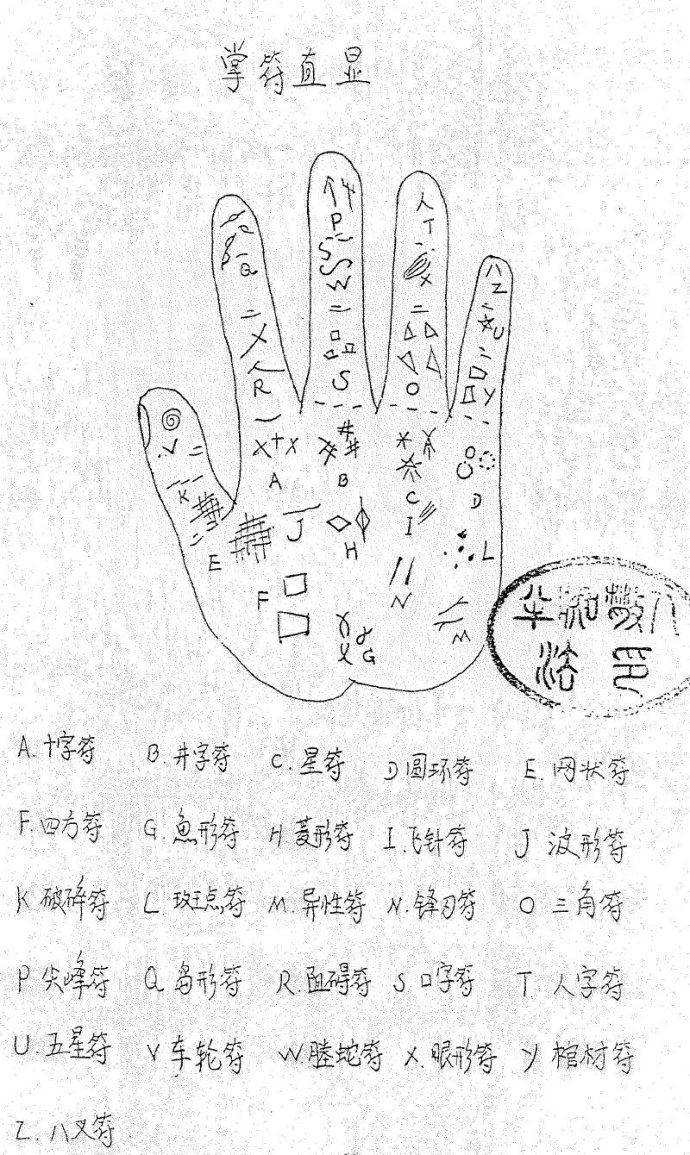 掌符直显
P
人
T
Q
W
X
八
Z
U
X
R
S
O
Y
V
K
A
B
C
D
E
J
H
I
L
F
N
G
M
A.十字符 B.井字符 C.星符 D圆环符 E.网状符
F.四方符 G.鱼形符 H菱形符 I.飞针符 J 波形符
K破碎符 L 斑点符 M.异性符 N.锋刃符 O 三角符
P尖峰符 Q岛形符 R.阻碍符 S口字符 T.人字符
U.五星符 V车轮符 W.螣蛇符 X.眼形符 Y棺材符
Z.八叉符